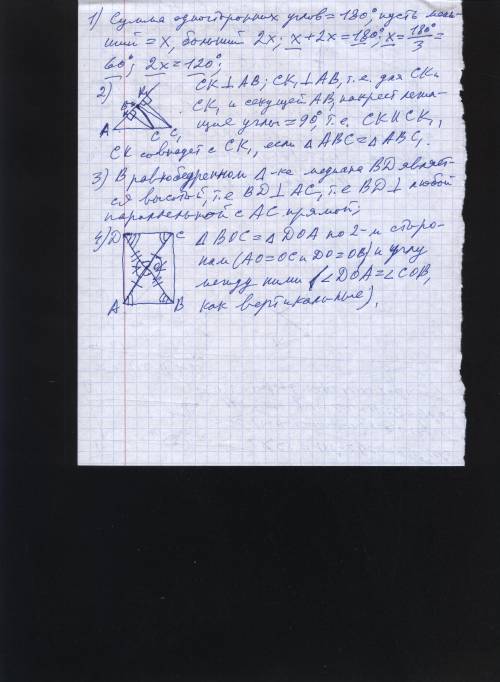 1) Сумма односторонних углов = 180°, пусть мень-
ший = x, больший 2x; x + 2x = 180°; x = 180°/3 =
60°; 2x = 120°;
2) CK ⊥ AB; CK₁ ⊥ AB, т.е. для CK и
CK₁ и секущей AB, накрест лежа-
щие углы = 90°, т.е. CK II CK₁,
CK совпадёт с CK₁, если △ABC = △ABC₁.
A C C₁
3) В равнобедренном △-ке медиана BD являет-
ся высотой, т.е BD ⊥ AC, т.е BD ⊥ любой
параллельной с AC прямой;
4) D C △BOC = △DOA по 2-м сторо-
нам (AO = OC и DO = OB) и углу
между ними (∠DOA = ∠COB,
A B как вертикальные).